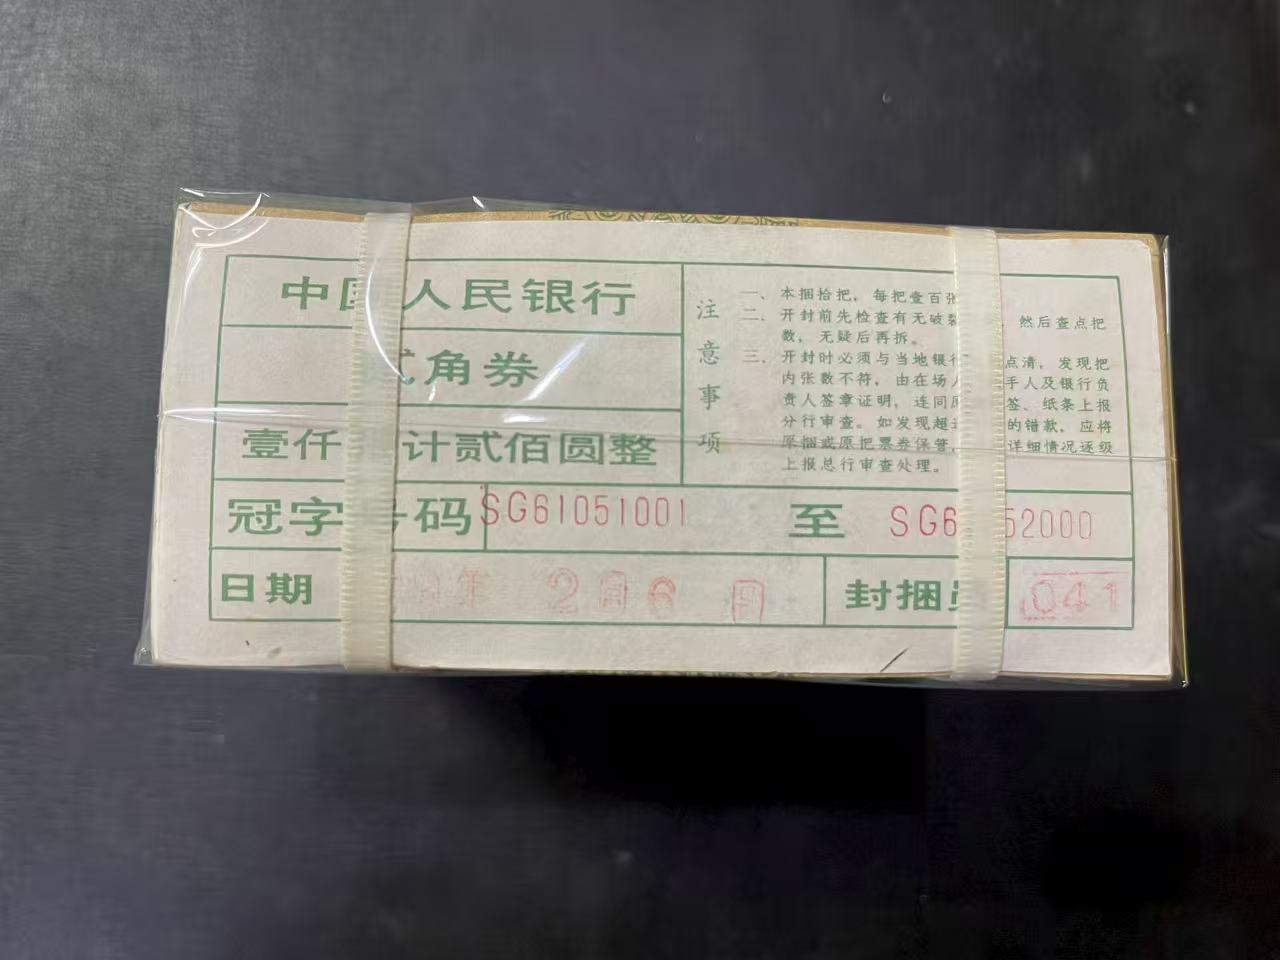 中国人民银行
贰角券
壹仟 计贰佰圆整
冠字号码 SG61051001 至 SG6 52000
日期 年 2 6 日 封捆员 041
注意事项
一、本捆拾把，每把壹百张
二、开封前先检查有无破裂 然后查点把
数，无疑后再拆。
三、开封时必须与当地银行 点清，发现把
内张数不符，由在场人 手人及银行负
责人签章证明，连同原 签、纸条上报
分行审查。如发现超 的错款，应将
原捆或原把票券保管， 详细情况逐级
上报总行审查处理。